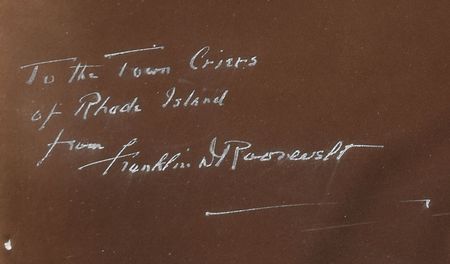 To the Town Criers
of Rhode Island
from Franklin D Roosevelt